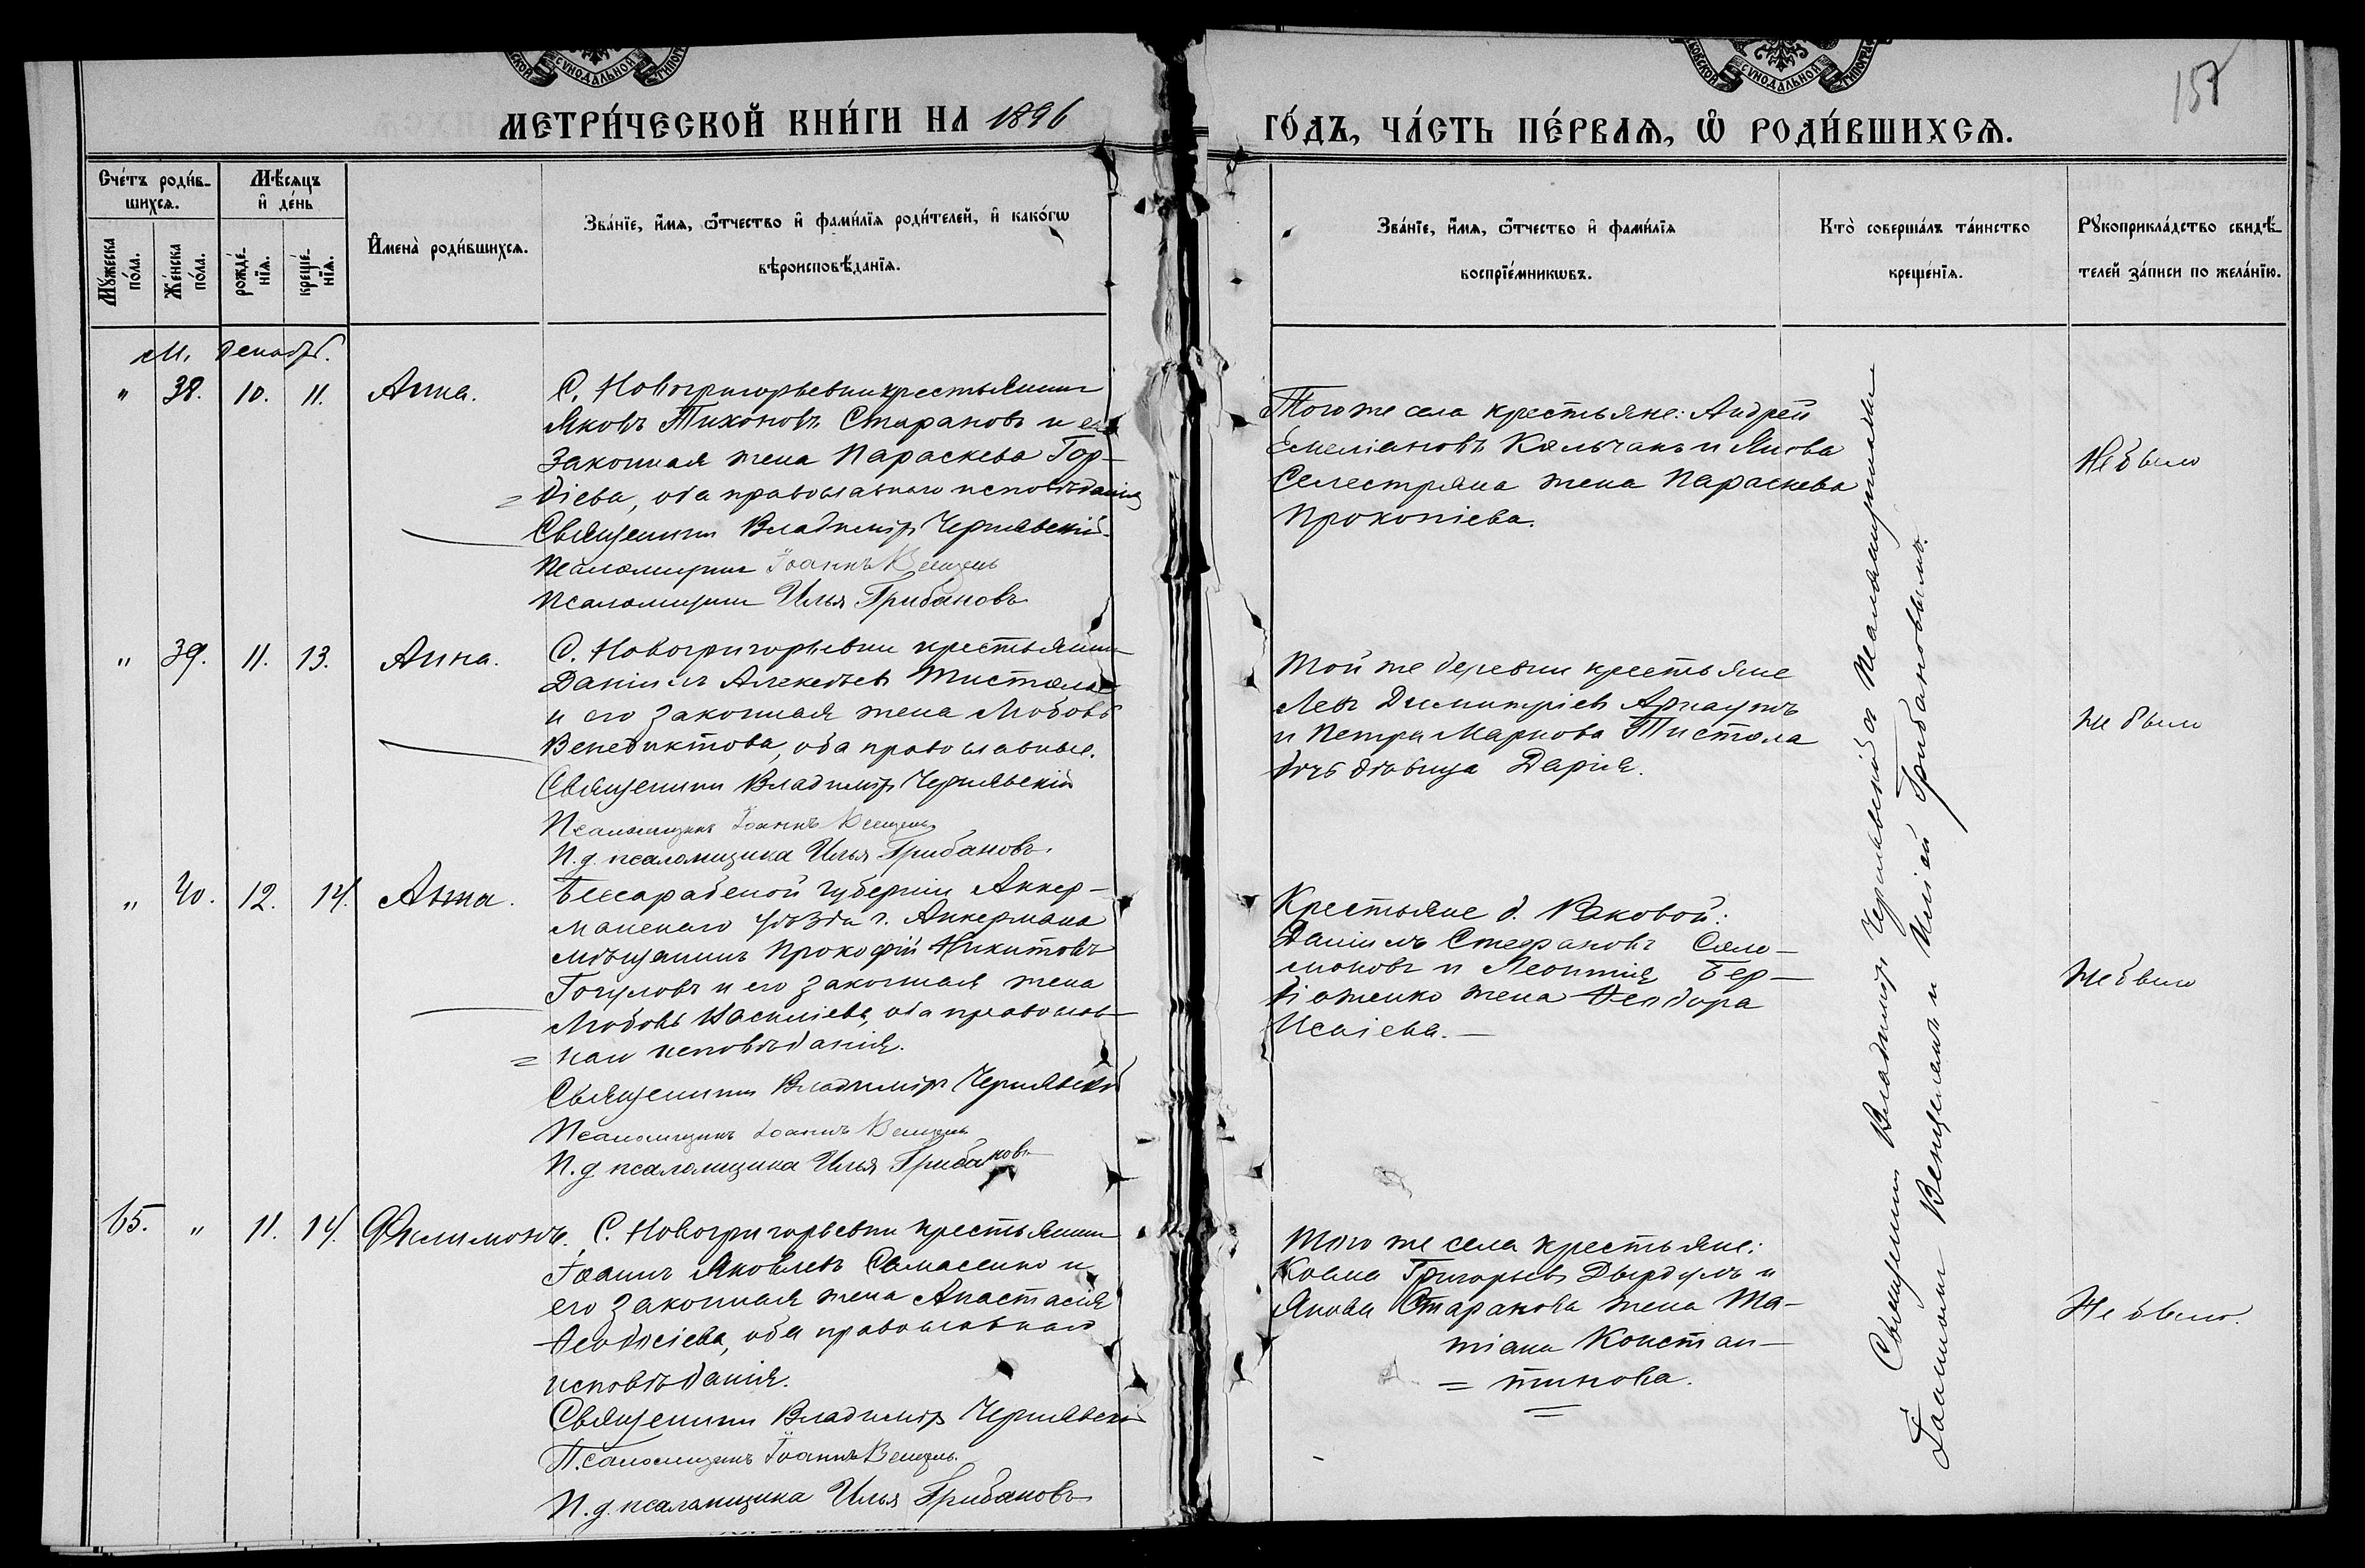 157
МЕТРИ́ЧЕСКОЙ КНИ́ГИ НА 1896 ГО́ДЪ, ЧА́СТЬ ПЕ́РВАѦ, Ѡ РОДИ́ВШИХСѦ.
Сче́тъ роди́в-
шихсѧ.
Мꙋ́жеска
по́ла.
Же́нска
по́ла.
Мѣ́сѧцъ
и҆ де́нь
рожде́-
нїѧ.
креще́-
нїѧ.
И҆мена̀ роди́вшихсѧ.
Зва́нїе, и҆́мѧ, ѻ҆́тчество и҆ фами́лїѧ роди́телей, и҆ како́гѡ
вѣроисповѣ́данїѧ.
Зва́нїе, и҆́мѧ, ѻ҆́тчество и҆ фами́лїѧ
воспрїе́мникѡвъ.
Кто̀ соверша́лъ та́инство
креще́нїѧ.
Рꙋкоприкла́дство свидѣ́-
телей за́писи по жела́нїю.
М. Декабрь.
" 38. 10. 11. Анна.
С. Новогригорьевки крестьянинъ
Яковъ Тихоновъ Старановъ и его
законная жена Параскева Гор-
= діева, оба православнаго исповѣданія
Священникъ Владиміръ Чернявскій
Псаломщикъ Іоаннъ Венцель
Псаломщикъ Илья Грибановъ
Того же села крестьяне: Андрей
Емеліановъ Кальчакъ и Якова
Селестряна жена Параскева
Прокопіева.
Не было
" 39. 11. 13. Анна.
С. Новогригорьевки крестьянинъ
Даніилъ Алексѣевъ Тистолъ
и его законная жена Любовь
Венедиктова, оба православные.
Священникъ Владиміръ Чернявскій
Псаломщикъ Іоаннъ Венцель
И.д. псаломщика Илья Грибановъ.
Той же деревни крестьяне
Левъ Димитріевъ Арнаутъ
и Петра Маркова Тистола
дочь дѣвица Дарія.
Не было
" 40. 12. 14. Анна.
Бессарабской губерніи Аккер-
манскаго уѣзда г. Аккермана
мѣщанинъ Прокофій Никитовъ
Гоцуловъ и его законная жена
Любовь Василіева, оба православ-
= наго исповѣданія.
Священникъ Владиміръ Чернявскій
Псаломщикъ Іоаннъ Венцель
И.д. псаломщика Илья Грибановъ
Крестьяне д. Раковой:
Даніилъ Стефановъ Соло-
моновъ и Леонтія Бер-
діоженко жена Ѳеодора
Исаіева.
Не было
65. " 11. 14. Филимонъ.
С. Новогригорьевки крестьянинъ
Іоаннъ Яковлевъ Самасенко и
его законная жена Анастасія
Ѳеодосіева, оба православнаго
исповѣданія.
Священникъ Владиміръ Чернявскій
Псаломщикъ Іоаннъ Венцель.
И.д. псаломщика Илья Грибановъ
Того же села крестьяне:
Косма Григорьевъ Дырдулъ и
Якова Старанова жена Та-
тіана Констан-
= тинова.
Не было.
Священникъ Владиміръ Чернявскій съ Псаломщиками
Іоанномъ Венцелемъ и Иліей Грибановымъ.